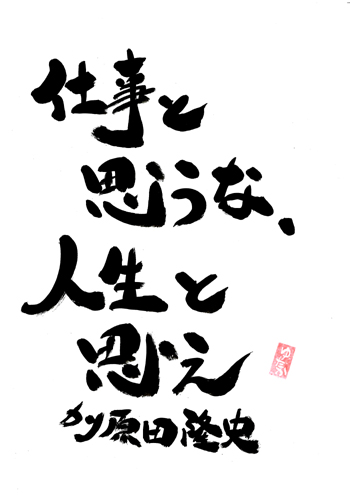 仕事と
思うな、
人生と
思え
原田隆史